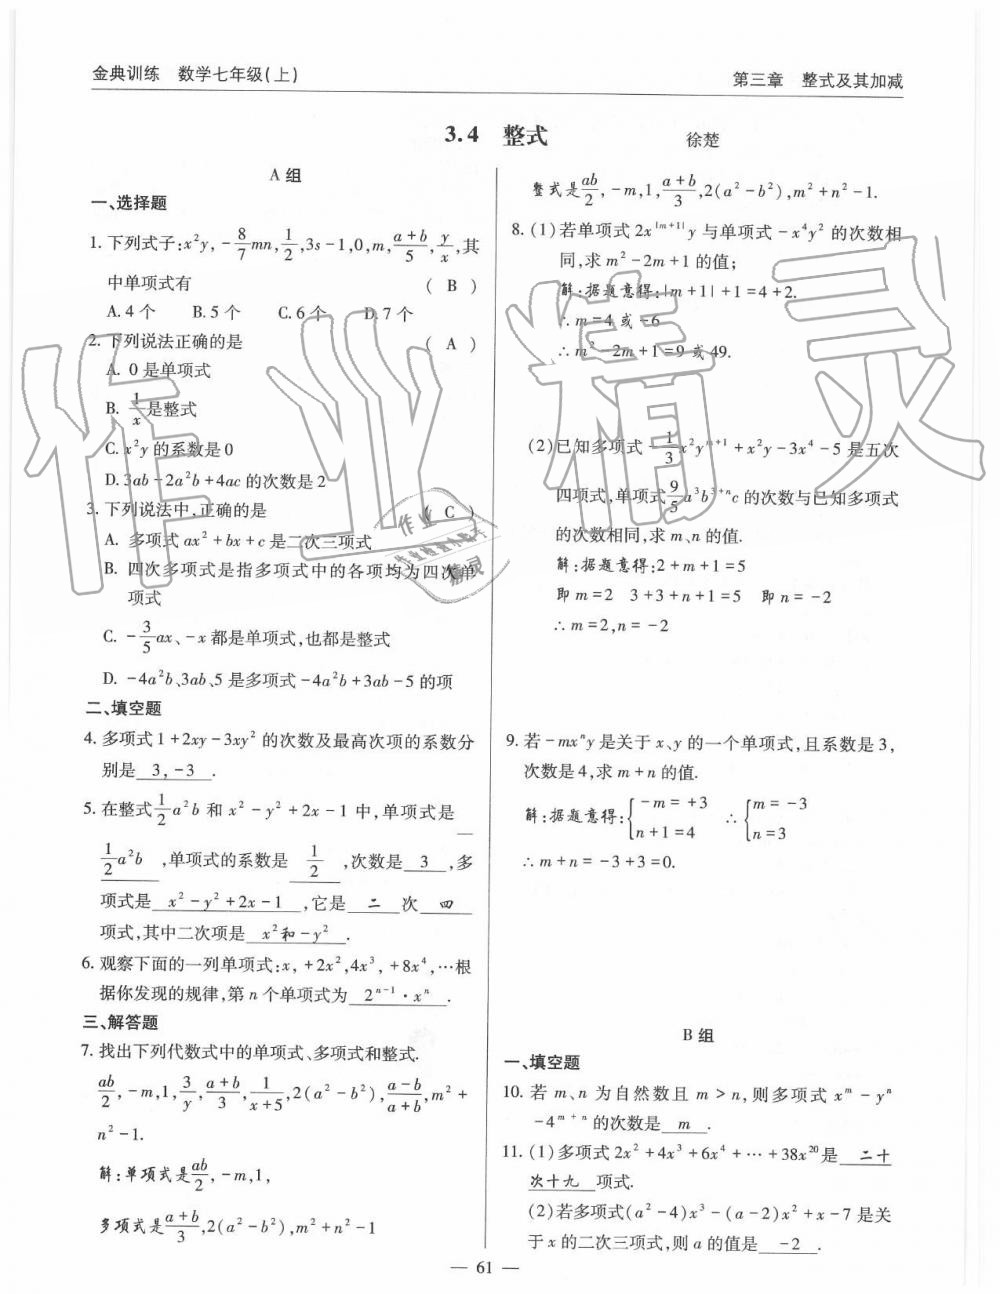 金典训练　数学七年级(上)
第三章　整式及其加减
3.4　整式
徐楚
A 组
一、选择题
1. 下列式子:x²y, -8/7mn, 1/2, 3s-1, 0, m, (a+b)/5, y/x, 其
中单项式有 ( B )
A. 4 个 B. 5 个 C. 6 个 D. 7 个
2. 下列说法正确的是 ( A )
A. 0 是单项式
B. 1/x 是整式
C. x²y 的系数是 0
D. 3ab-2a²b+4ac 的次数是 2
3. 下列说法中,正确的是 ( C )
A. 多项式 ax²+bx+c 是二次三项式
B. 四次多项式是指多项式中的各项均为四次单
项式
C. -3/5ax、-x 都是单项式,也都是整式
D. -4a²b、3ab、5 是多项式 -4a²b+3ab-5 的项
二、填空题
4. 多项式 1+2xy-3xy² 的次数及最高次项的系数分
别是 3,-3 .
5. 在整式 1/2a²b 和 x²-y²+2x-1 中,单项式是
1/2a²b ,单项式的系数是 1/2 ,次数是 3 ,多
项式是 x²-y²+2x-1 ,它是 二 次 四
项式,其中二次项是 x²和-y² .
6. 观察下面的一列单项式:x, +2x², 4x³, +8x⁴, …根
据你发现的规律,第 n 个单项式为 2ⁿ⁻¹·xⁿ .
三、解答题
7. 找出下列代数式中的单项式、多项式和整式.
ab/2, -m, 1, 3/y, (a+b)/3, 1/(x+5), 2(a²-b²), (a-b)/(a+b), m²+
n²-1.
解:单项式是 ab/2, -m, 1,
多项式是 (a+b)/3, 2(a²-b²), m²+n²-1
整式是 ab/2, -m, 1, (a+b)/3, 2(a²-b²), m²+n²-1.
8. (1) 若单项式 2x^|m+1|y 与单项式 -x⁴y² 的次数相
同,求 m²-2m+1 的值;
解:据题意得:|m+1|+1=4+2.
∴ m=4 或 -6
∴ m²-2m+1=9 或 49.
(2) 已知多项式 -1/3x²y^(m+1)+x²y-3x⁴-5 是五次
四项式,单项式 9/5a³b^(3+n)c 的次数与已知多项式
的次数相同,求 m、n 的值.
解:据题意得:2+m+1=5
即 m=2　3+3+n+1=5　即 n=-2
∴ m=2,n=-2
9. 若 -mxⁿy 是关于 x、y 的一个单项式,且系数是 3,
次数是 4,求 m+n 的值.
解:据题意得:{-m=+3 n+1=4 ∴ {m=-3 n=3
∴ m+n=-3+3=0.
B 组
一、填空题
10. 若 m、n 为自然数且 m>n,则多项式 xᵐ-yⁿ
-4^(m+n) 的次数是 m .
11. (1) 多项式 2x²+4x³+6x⁴+…+38x²⁰ 是 二十
次十九 项式.
(2) 若多项式 (a²-4)x³-(a-2)x²+x-7 是关
于 x 的二次三项式,则 a 的值是 -2 .
— 61 —
作业精灵
作业
精灵